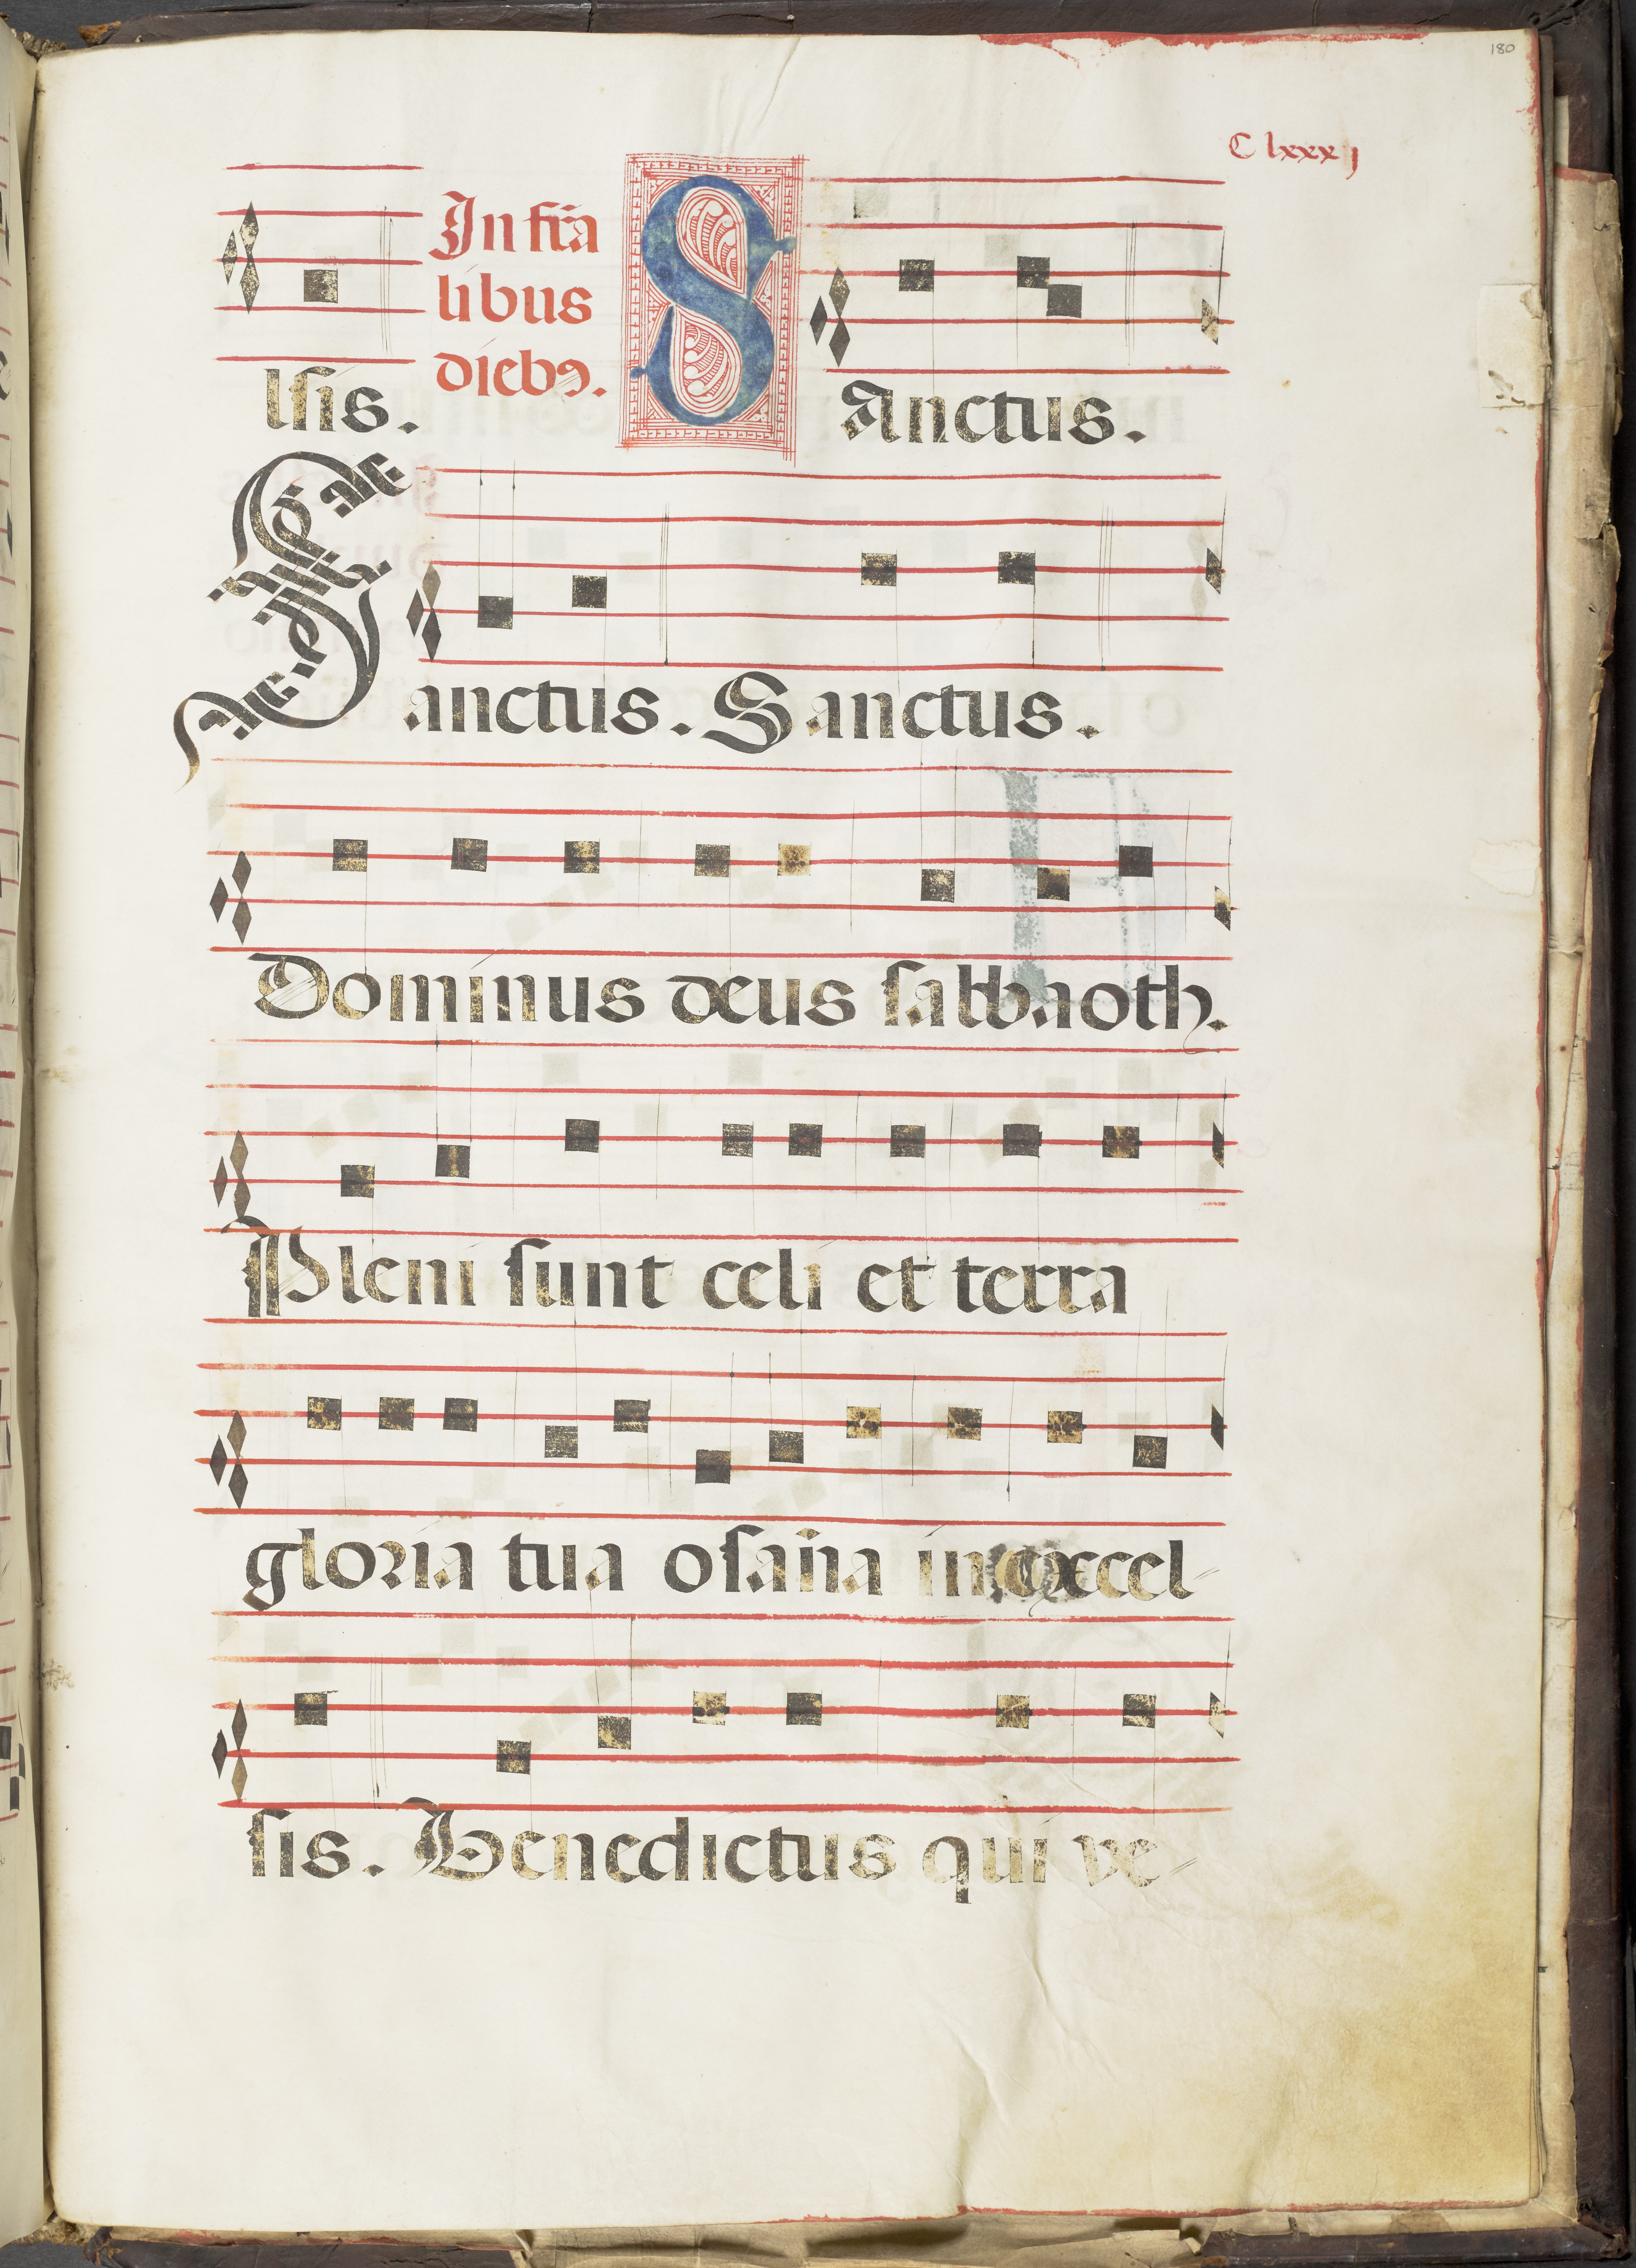 180
C lxxxij
lsis. In feria
libus
diebꝯ. SAnctus.
Sanctus. Sanctus.
Dominus deus sabbaoth.
Pleni sunt celi et terra
gloria tua osaña in excel-
sis. Benedictus qui ve-